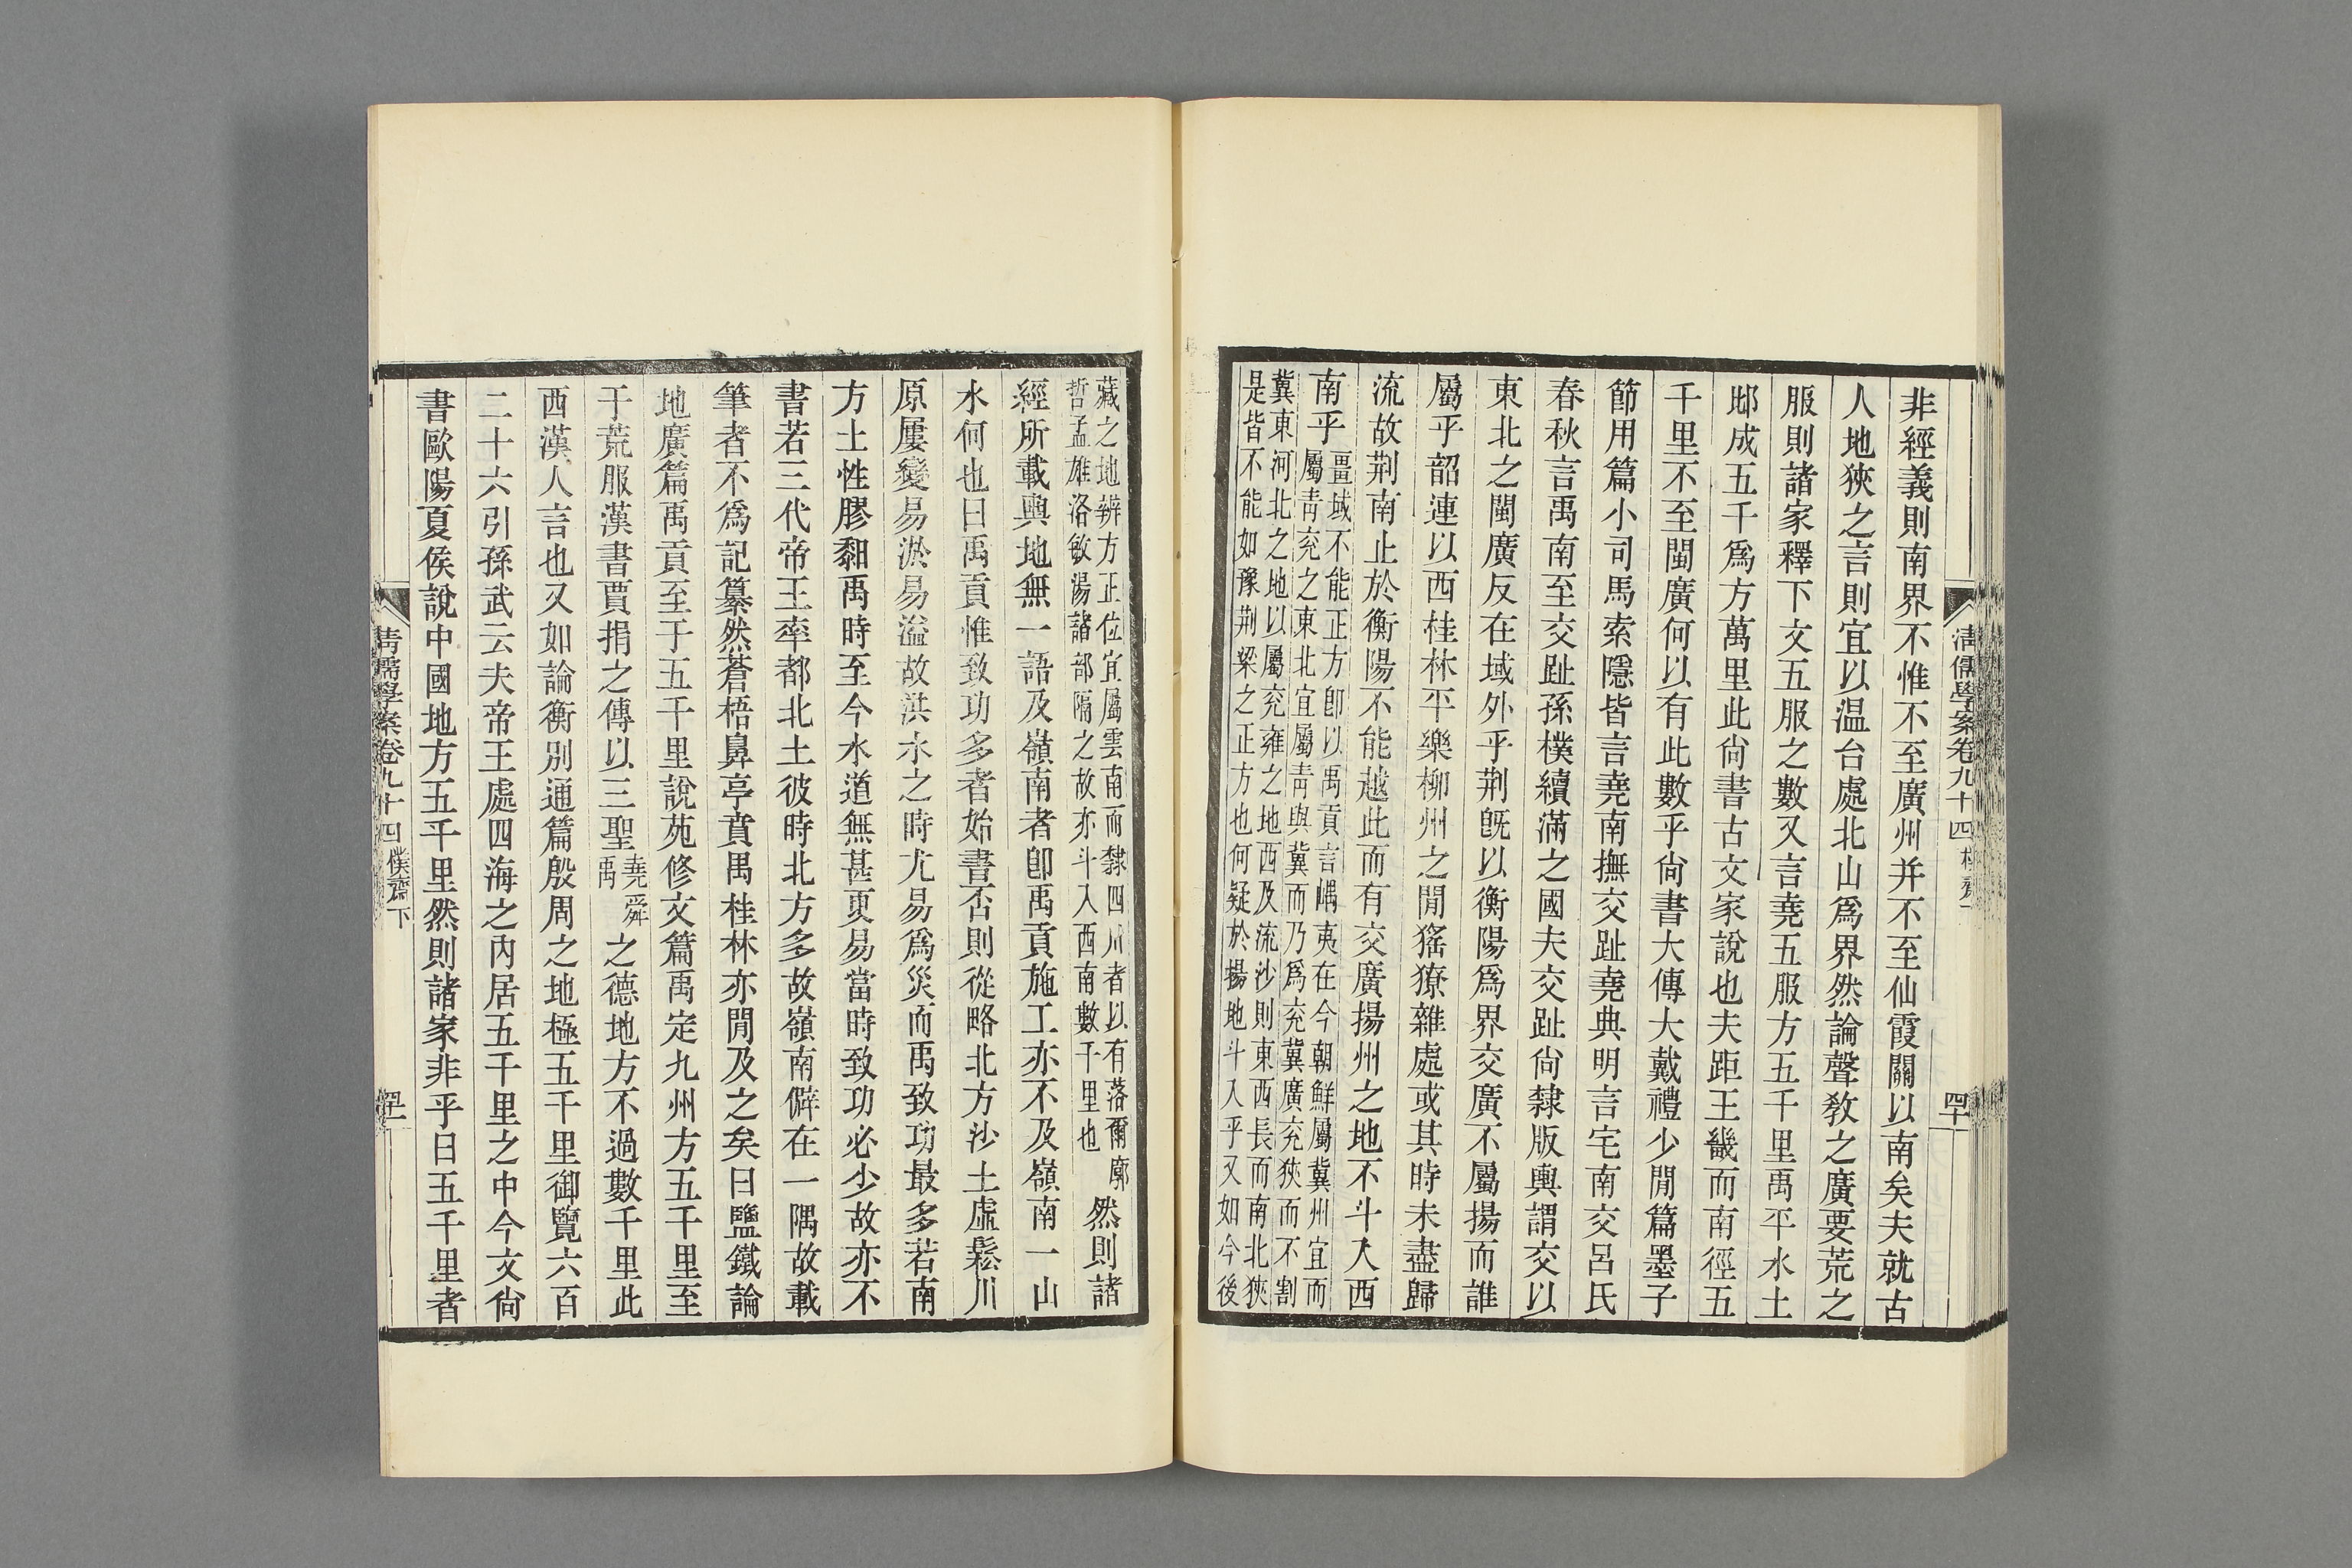 非經義則南界不惟不至廣州并不至仙霞關以南矣夫就古
人地狹之言則宜以温台處北山爲界然論聲敎之廣要荒之
服則諸家釋下文五服之數又言堯五服方五千里禹平水土
㢸成五千爲方萬里此尙書古文家說也夫距王畿而南徑五
千里不至閩廣何以有此數乎尙書大傳大戴禮少閒篇墨子
節用篇小司馬索隱皆言堯南撫交趾堯典明言宅南交呂氏
春秋言禹南至交趾孫樸續滿之國夫交趾尙隸版輿謂交以
東北之閩廣反在域外乎荆旣以衡陽爲界交廣不屬揚而誰
屬乎韶連以西桂林平樂柳州之閒猺獠雜處或其時未盡歸
流故荆南止於衡陽不能越此而有交廣揚州之地不斗入西
南乎
畺域不能正方卽以禹貢言嵎夷在今朝鮮屬冀州宜而
屬靑兖之東北宜屬靑與冀而乃爲兖冀廣兖狹而不割
冀東河北之地以屬兖雍之地西及流沙則東西長而南北狹
是皆不能如豫荆梁之正方也何疑於揚地斗入乎又如今後
藏之地辨方正位宜屬雲南而隸四川者以有落爾廓
哲孟雄洛敏湯諸部隔之故亦斗入西南數千里也
然則諸
經所載輿地無一語及嶺南者卽禹貢施工亦不及嶺南一山
水何也曰禹貢惟致功多者始書否則從略北方沙土虛鬆川
原屢變易淤易溢故洪水之時尤易爲災而禹致功最多若南
方土性膠黏禹時至今水道無甚更易當時致功必少故亦不
書若三代帝王率都北土彼時北方多故嶺南僻在一隅故載
筆者不爲記纂然蒼梧鼻亭賁禺桂林亦閒及之矣曰鹽鐵論
地廣篇禹貢至于五千里說苑修文篇禹定九州方五千里至
于荒服漢書賈捐之傳以三聖
堯舜
禹
之德地方不過數千里此
西漢人言也又如論衡別通篇殷周之地極五千里御覽六百
二十六引孫武云夫帝王處四海之內居五千里之中今文尙
書歐陽夏侯說中國地方五千里然則諸家非乎曰五千里者
清儒學案卷九十四
樸齋下